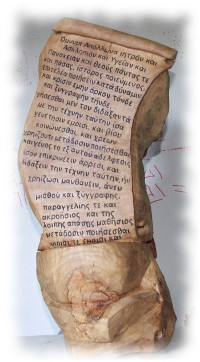 Όμνυμι Απόλλωνα ιητρόν και
Ασκληπιόν και Υγείαν και
Πανάκειαν και θεούς πάντας τε
και πάσας, ίστορας ποιεύμενος,
επιτελέα ποιήσειν κατά δύναμιν
και κρίσιν εμήν όρκον τόνδε
και ξυγγραφήν τήνδε.
ηγήσεσθαι μεν τον διδάξαντά
με την τέχνην ταύτην ίσα
γενέτησιν εμοίσι, και βίου
κοινώσεσθαι, και χρεών
χρηίζοντι μετάδοσιν ποιήσεσθαι,
και γένος το εξ αυτού αδελφοίς
ίσον επικρινείν άρρεσι, και
διδάξειν την τέχνην ταύτην, ην
χρηίζωσι μανθάνειν, άνευ
μισθού και ξυγγραφής,
παραγγελίης τε και
ακροήσιος και της
λοιπής απάσης μαθήσιος
μετάδοσιν ποιήσεσθαι
υιοίσι τε εμοίσι και